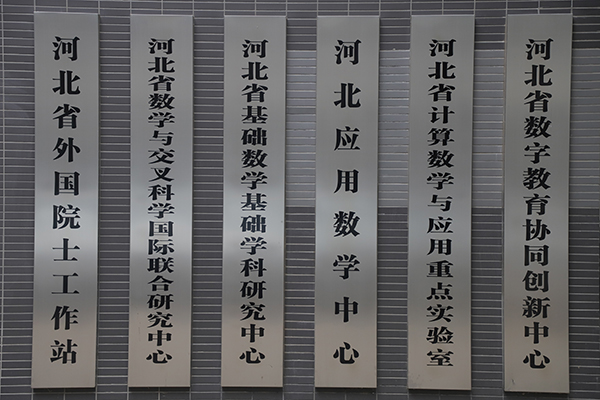 河北省外国院士工作站
河北省数学与交叉科学国际联合研究中心
河北省基础数学基础学科研究中心
河北应用数学中心
河北省计算数学与应用重点实验室
河北省数字教育协同创新中心